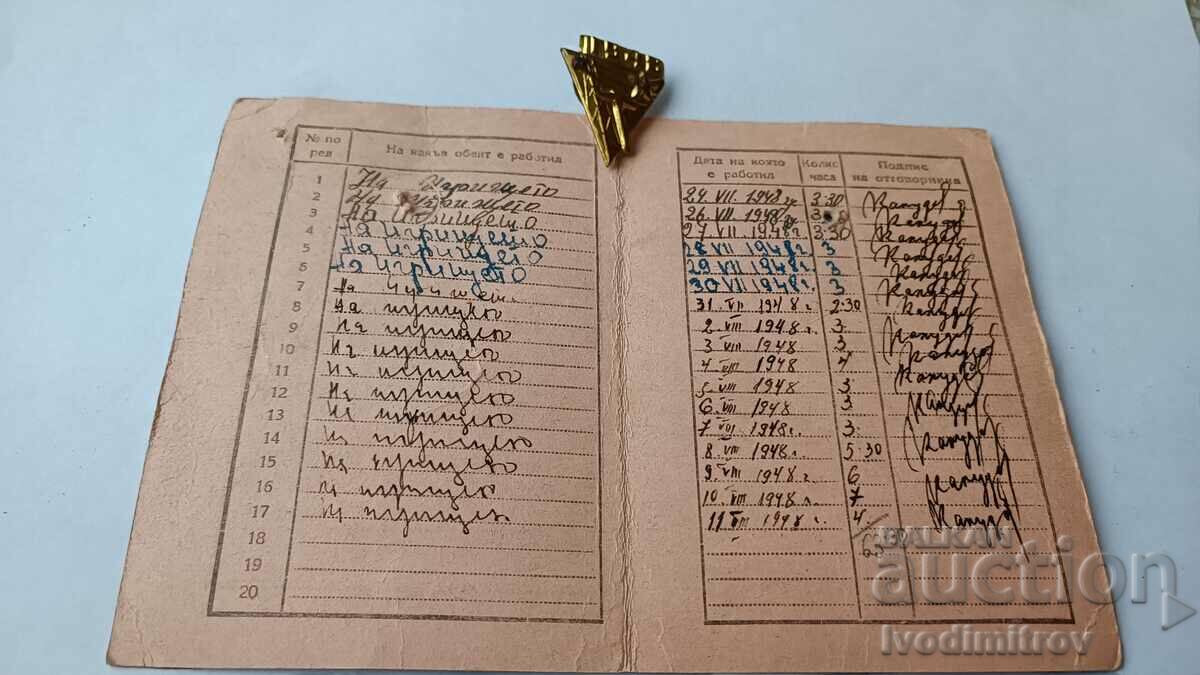 № по ред На какъв обект е работил Дата на която е работил Колко часа Подпис на отговорника
1 На Игрището 24. VII. 1948 г 3:30
2 На Игрището 26. VII. 1948 г
3 На Игрището 27 VII 1948 г. 3:30
4 На игрището 28 VII 1948 г 3
5 На игрището 29 VII 1948 г. 3
6 На игрището 30 VII 1948 г. 3
7 На 31. VII 1948 г 2:30
8 На игрището 2. VIII 1948 г. 3.
9 На игрището 3 VIII 1948 3
10 На игрището 4 VIII 1948 4
11 На игрището 5. VIII 1948 3
12 На игрището 6. VIII 1948 3.
13 На игрището 7 VIII 1948 г. 3.
14 На игрището 8 VIII 1948 г. 5:30
15 На игрището 9. VIII 1948 г. 6
16 игрището 10. VIII 1948 г. 7
17 игрището 11 VIII 1948 г. 4.
18
19
20
BALKAN
auction
Ivodimitrov